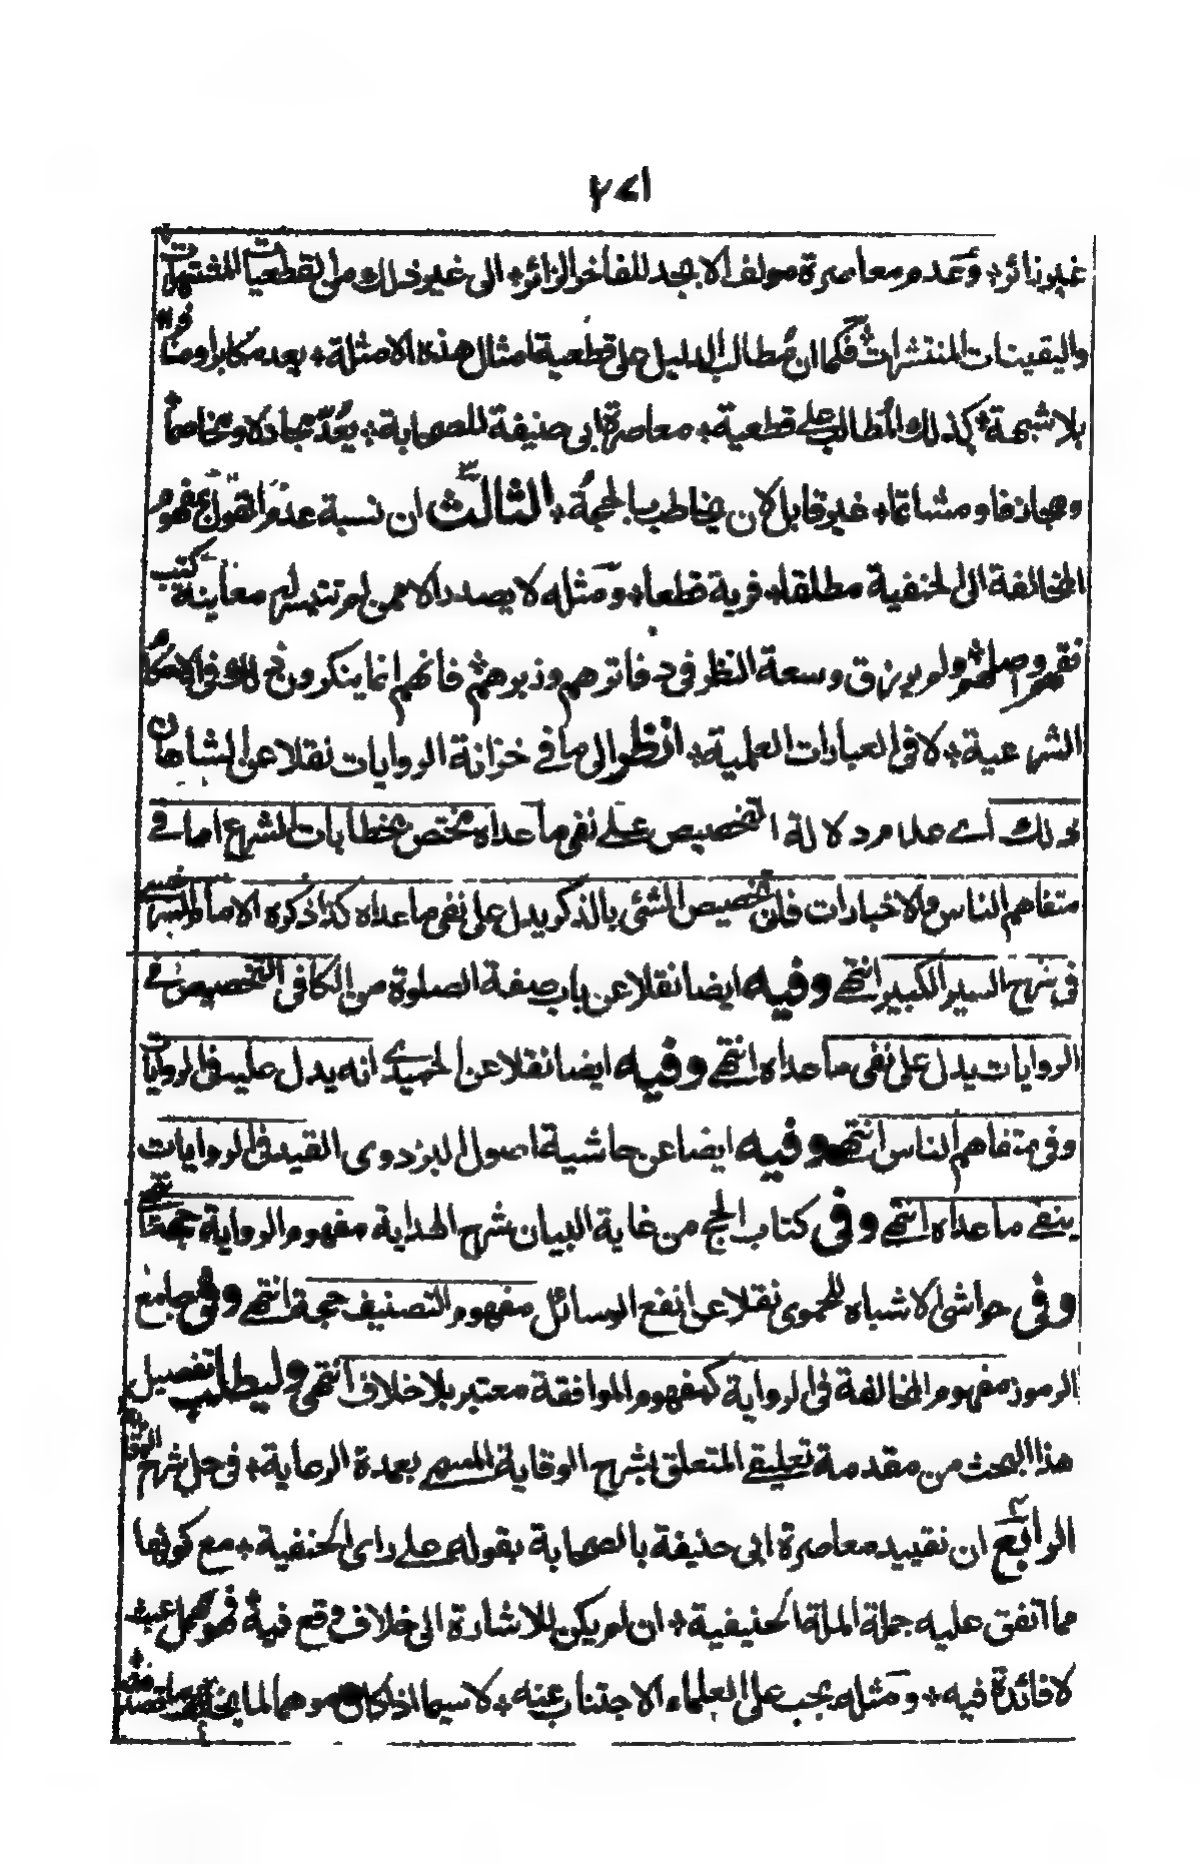 ٢٧١
غير زائر * وعدم معاصرة مولف الابجد للفاخر الزائر * الى غير ذلك من القطعيات المشتهرات
واليقينات المنتشرات فكما ان مطالب الدليل على قطعية امثال هذه الامثلة * يعد مكابرا ومنازعا
بلا شبهة * كذلك المطالب على قطعية * معاصرة ابى حنيفة للصحابة * يعد مجادلا ومخاصما
ومجازفا ومشاتما * غير قابل لان يخاطب بالحجة * الثالث ان نسبة عدم القول بمفهوم
المخالفة الى الحنفية مطلقا * فرية قطعا * ومثله لا يصدر الا ممن لم تتيسر له معاينة كتب
فقههم واصولهم ولم يرزق وسعة النظر فى دفاترهم وزبرهم فانهم انما ينكرون ذلك فى الاحكام
الشرعية * لا فى العبارات العلمية * انظر الى ما فى خزانة الروايات نقلا عن الشاهان
قوله لك اى عدم دلالة التخصيص على نفى ما عداه مختص بخطابات الشرع اما فى
متفاهم الناس والاخبارات فان تخصيص الشئ بالذكر يدل على نفى ما عداه كذا ذكره الامام السرخسى
فى شرح السير الكبير انتهى وفيه ايضا نقلا عن باب صفة الصلوة من الكافى التخصيص فى
الروايات يدل على نفى ما عداه انتهى وفيه ايضا نقلا عن الحميدى انه يدل عليه فى الروايات
وفى متفاهم الناس انتهى وفيه ايضا عن حاشية اصول البزدوى القيد فى الروايات
ينفى ما عداه انتهى وفى كتاب الحج من غاية البيان شرح الهداية مفهوم الرواية حجة انتهى
وفى حواشى الاشباه للحموى نقلا عن انفع الوسائل مفهوم التصنيف حجة انتهى وفى جامع
الرموز مفهوم المخالفة فى الرواية كمفهوم الموافقة معتبر بلا خلاف انتهى وليطلب تفصيل
هذا البحث من مقدمة تعليقى المتعلق بشرح الوقاية المسمى بعمدة الرعاية * فى حل شرح الوقاية
الرابع ان تقييد معاصرة ابى حنيفة بالصحابة بقوله على راى الحنفية * مع كونها
مما اتفق عليه جملة الملة الحنيفية * ان لم يكن للاشارة الى خلاف وقع فيه فهو مهمل عبث
لا فائدة فيه * ومثله يجب على العلماء الاجتناب عنه * لا سيما اذا كان موهما لما يخالف